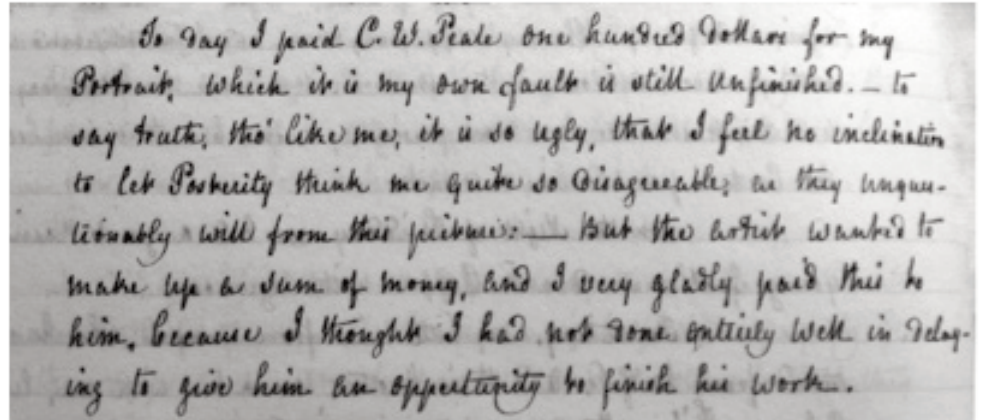 To day I paid C. W. Peale one hundred dollars for my
Portrait, which it is my own fault is still unfinished. — to
say truth, tho' like me, it is so ugly, that I feel no inclination
to let Posterity think me quite so disagreeable; as they unques-
tionably will from this picture: — But the artist wanted to
make up a sum of money, and I very gladly paid this to
him, because I thought I had not done entirely well in delay-
ing to give him an opportunity to finish his work.